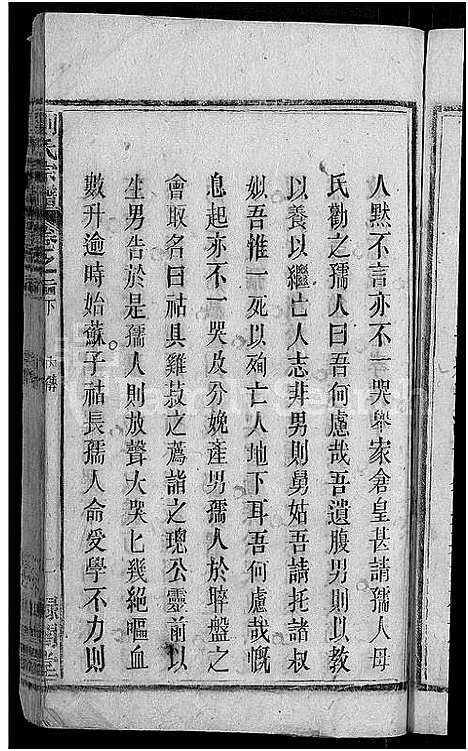 人默不言亦不一哭舉家倉皇甚請孺人母
氏勸之孺人曰吾何慮哉吾遺腹男則以教
以養以繼亡人志非男則舅姑吾請托諸叔
姒吾惟一死以殉亡人地下耳吾何慮哉慨
息起亦不一哭及分娩產男孺人於晬盤之
會取名曰祜具雞菽之薦詣之璁公靈前以
生男告於是孺人則放聲大哭匕幾絕嘔血
數升逾時始蘇子祜長孺人侖愛學不力則
劉氏宗譜 卷之 下 內傳